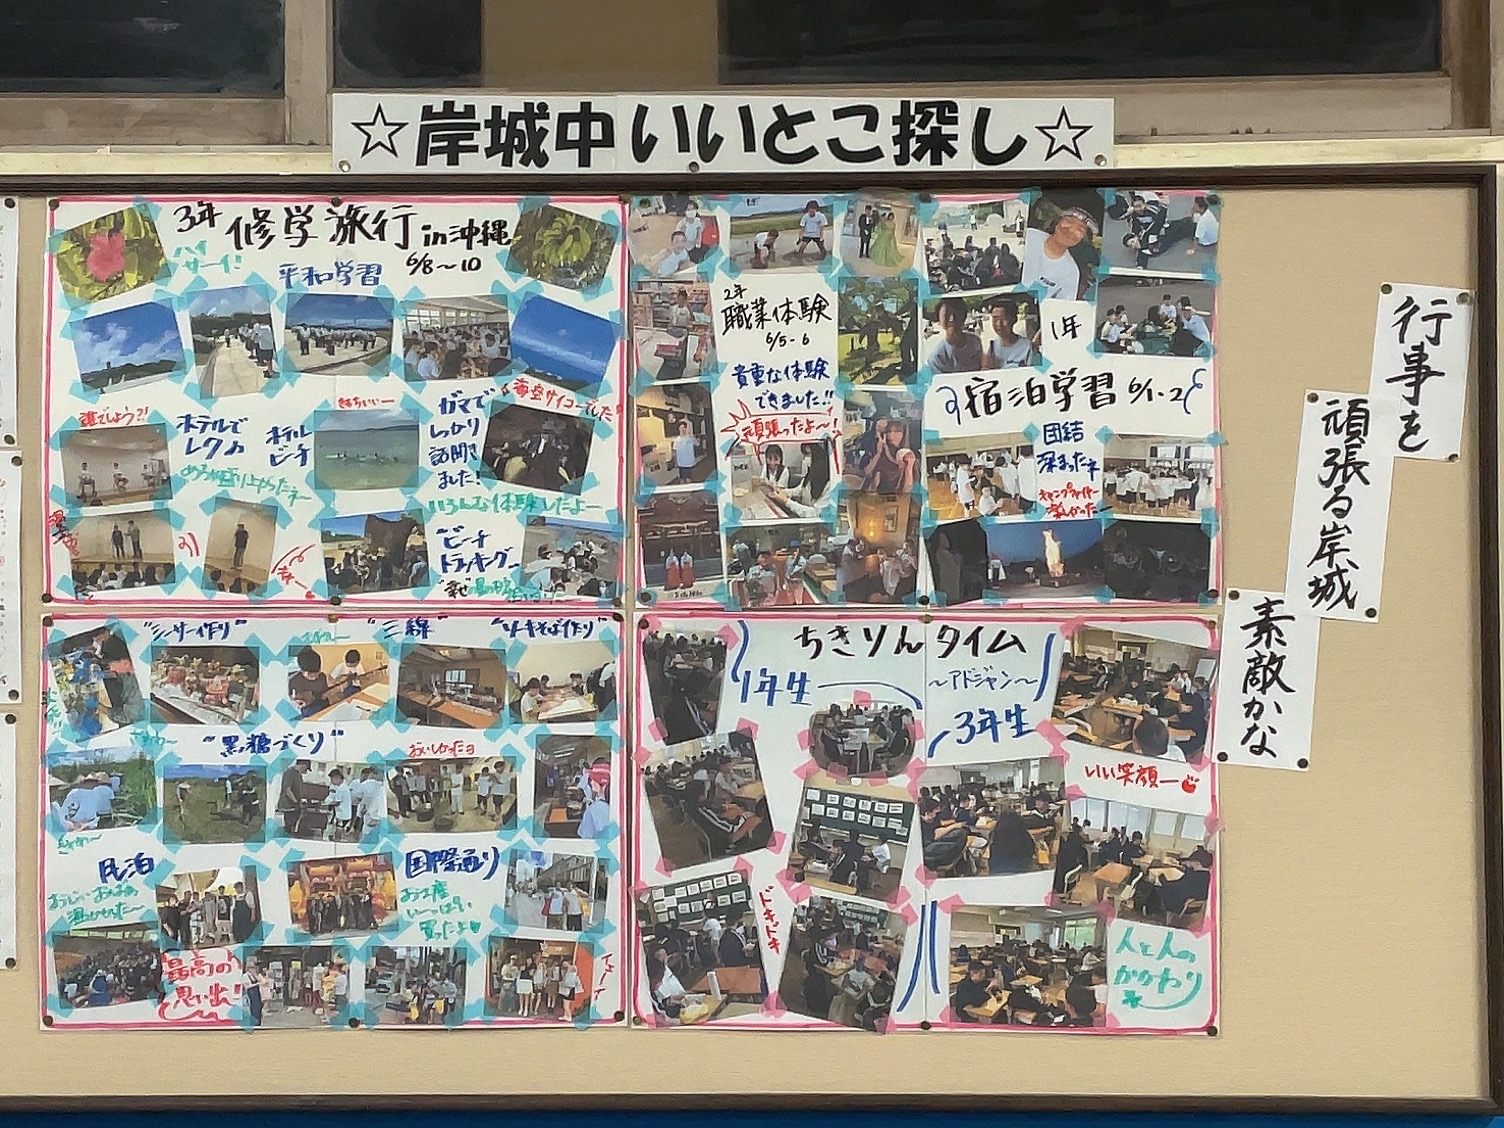 ☆岸城中いいとこ探し☆
3年 修学旅行 in 沖縄
6/8〜10
平和学習
誰でしょう?!
ホテルで
レク♪
ホテル
ビーチ
きもちいいー
ガマで
しっかり
説明き
ました!
海空サイコーでした
いろんな体験したよー
ビーチ
トラッキング
2年
職業体験
6/5-6
貴重な体験
できました!!
頑張ったよ〜!
1年
宿泊学習 6/1.2
団結
深まったネ
キャンプファイヤー
楽しかったー
"シーサー作り"
"三線"
"ソーキそば作り"
"黒糖づくり"
おいしかったヨ
民泊
国際通り
お土産
い〜っぱい
買ったよ
最高の
思い出!
ちきりんタイム
〜アドジャン〜
1年生
3年生
いい笑顔ー
ドキドキ
人と人の
かかわり
行事を
頑張る岸城
素敵かな